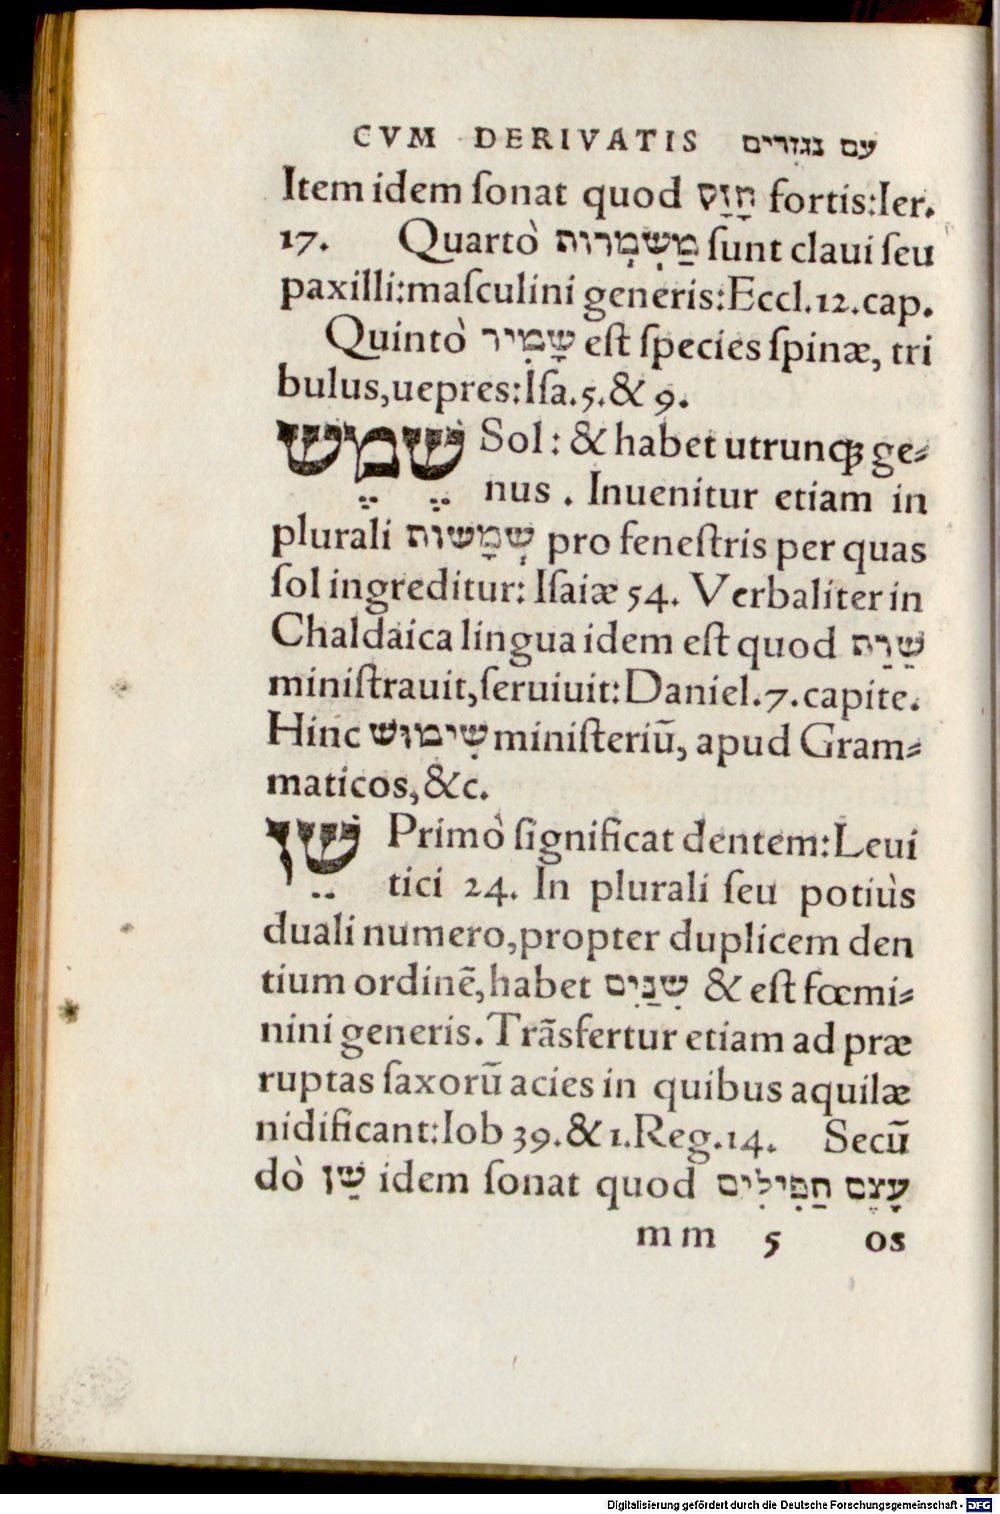 CVM DERIVATIS עם נגזרים
Item idem ſonat quod חָזָק fortis:Ier.
17. Quartò מַשְׂמְרוֹת ſunt claui ſeu
paxilli:maſculini generis:Eccl.12.cap.
Quintò שָׁמִיר eſt ſpecies ſpinæ, tri
bulus,uepres:Iſa.5.& 9.
שֶׁמֶשׁ Sol: & habet utrunqȝ ge⸗
nus . Inuenitur etiam in
plurali שְׁמָשׁוֹת pro feneſtris per quas
ſol ingreditur: Iſaiæ 54. Verbaliter in
Chaldaica lingua idem eſt quod שֵׁרַת
miniſtrauit,ſeruiuit:Daniel.7.capite.
Hinc שִׁימוּשׁ miniſteriū, apud Gram⸗
maticos,&c.
שֵׁן Primò ſignificat dentem:Leui
tici 24. In plurali ſeu potiùs
duali numero,propter duplicem den
tium ordinē,habet שִׁנַּיִם & eſt fœmi⸗
nini generis.Trāsfertur etiam ad præ
ruptas ſaxorū acies in quibus aquilæ
nidificant:Iob 39.&1.Reg.14. Secū
dò שֵׁן idem ſonat quod עֶצֶם הַפִּילִים
mm 5 os
Digitalisierung gefördert durch die Deutsche Forschungsgemeinschaft - DFG